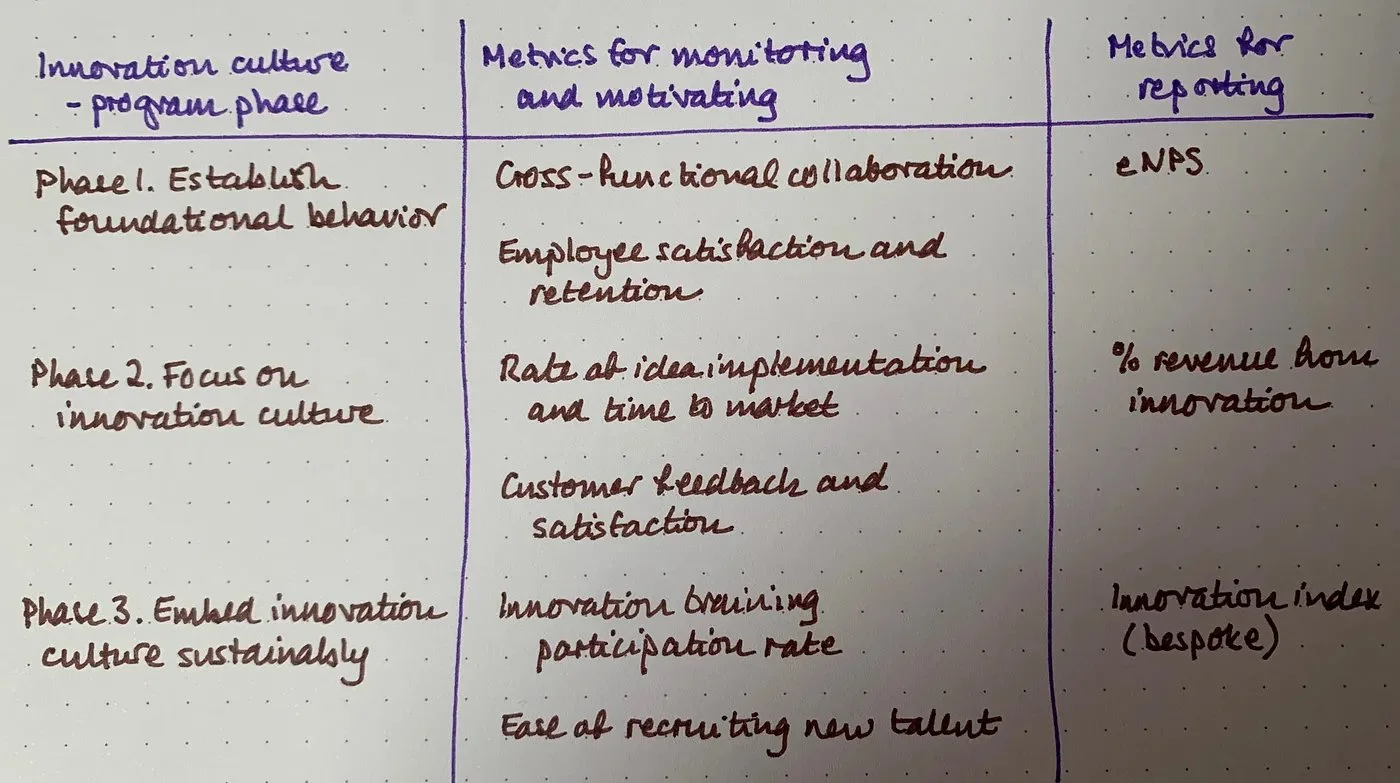 Innovation culture
- program phase
Metrics for monitoring
and motivating
Metrics for
reporting
Phase 1. Establish
foundational behavior
Cross-functional collaboration
Employee satisfaction and
retention
eNPS
Phase 2. Focus on
innovation culture
Rate of idea implementation
and time to market
Customer feedback and
satisfaction
% revenue from
innovation
Phase 3. Embed innovation
culture sustainably
Innovation training
participation rate
Ease of recruiting new talent
Innovation index
(bespoke)